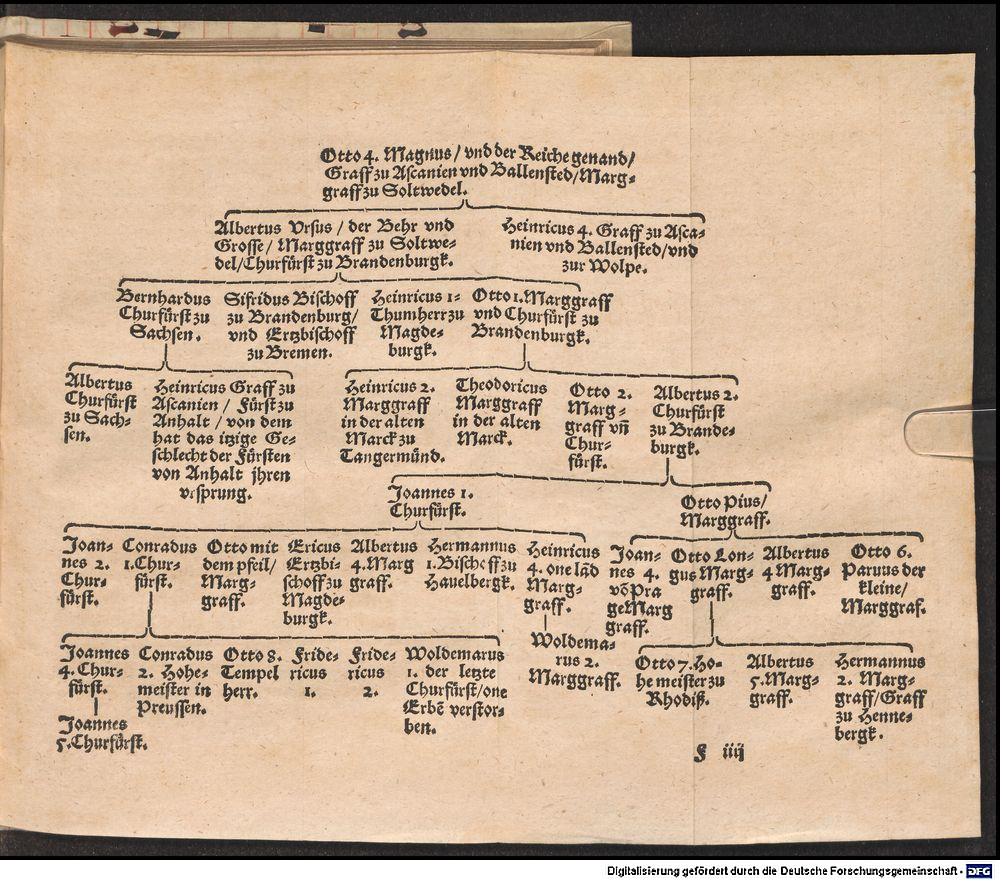 Otto 4. Magnus / vnd der Reiche genand /
Graff zu Ascanien vnd Ballensted / Marg-
graff zu Soltwedel.
Albertus Vrsus / der Behr vnd
Grosse / Marggraff zu Soltwe-
del / Churfürst zu Brandenburgk.
Heinricus 4. Graff zu Asca-
nien vnd Ballensted / vnd
zur Wolpe.
Bernhardus
Churfürst zu
Sachsen.
Sifridus Bischoff
zu Brandenburg /
vnd Ertzbischoff
zu Bremen.
Heinricus 1.
Thumherr zu
Magde-
burgk.
Otto 1. Marggraff
vnd Churfürst zu
Brandenburgk.
Albertus
Churfürst
zu Sach-
sen.
Heinricus Graff zu
Ascanien / Fürst zu
Anhalt / von dem
hat das itzige Ge-
schlecht der Fürsten
von Anhalt jhren
vrsprung.
Heinricus 2.
Marggraff
in der alten
Marck zu
Tangermünd.
Theodoricus
Marggraff
in der alten
Marck.
Otto 2.
Marg-
graff vñ
Chur-
fürst.
Albertus 2.
Churfürst
zu Brande-
burgk.
Joannes 1.
Churfürst.
Otto Pius /
Marggraff.
Joan-
nes 2.
Chur-
fürst.
Conradus
1. Chur-
fürst.
Otto mit
dem pfeil /
Marg-
graff.
Ericus
Ertzbi-
schoff zu
Magde-
burgk.
Albertus
4. Marg
graff.
Hermannus
1. Bischoff zu
Hauelbergk.
Heinricus
4. one läd
Marg-
graff.
Woldema-
rus 2.
Marggraff.
Joan-
nes 4.
võ Pra
ge Marg
graff.
Otto Lon-
gus Marg-
graff.
Albertus
4 Marg-
graff.
Otto 6.
Paruus der
kleine /
Marggraf.
Joannes
4. Chur-
fürst.
Joannes
5. Churfürst.
Conradus
2. Hohe-
meister in
Preussen.
Otto 8.
Tempel
herr.
Fride-
ricus
1.
Fride-
ricus
2.
Woldemarus
1. der letzte
Churfürst / one
Erbẽ verstor-
ben.
Otto 7. Ho-
he meister zu
Rhodiß.
Albertus
5. Marg-
graff.
Hermannus
2. Marg-
graff / Graff
zu Henne-
bergk.
F iiij
Digitalisierung gefördert durch die Deutsche Forschungsgemeinschaft - DFG